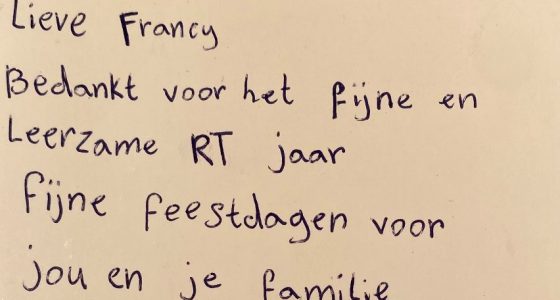 Lieve Francy
Bedankt voor het fijne en
Leerzame RT jaar
fijne feestdagen voor
jou en je familie